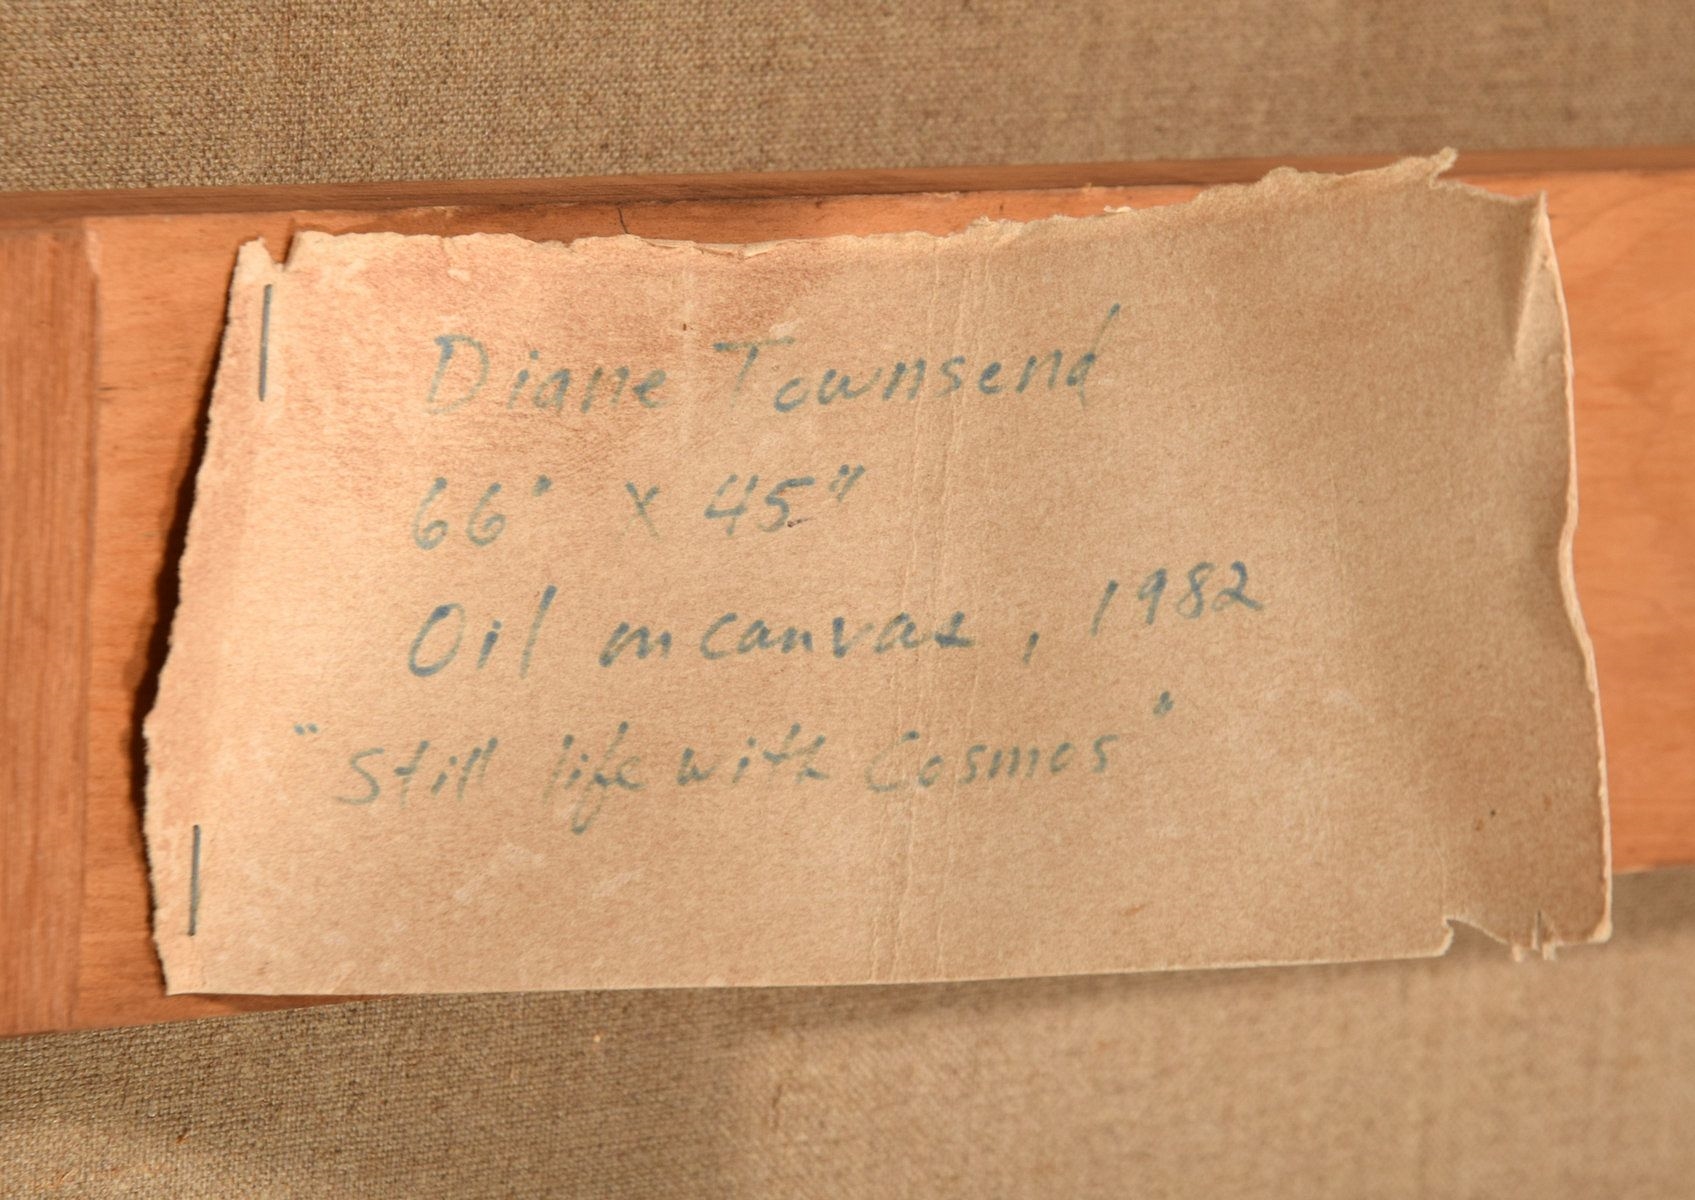 Diane Townsend
66" X 45"
Oil on canvas, 1982
"Still life with Cosmos"